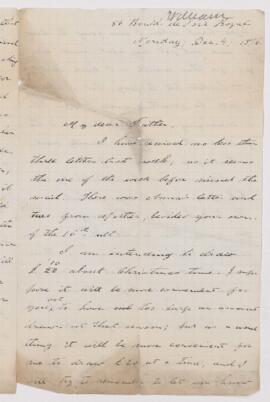 William
Boulvd. de Port Royal
Monday, Dec. 4,
My dear Father,
I have received no less than
three letters last week, as it seems
the one of the week before missed the
mail. There was a letter and
two from Mother, besides your own
of the 16th ult.
I am intending to draw
£20 about Christmas time. I sup-
pose it will be more convenient for
you, not to have too large an account
drawn at that season; but as a
thing it will be more convenient for
me to draw £20 at a time, and I
will try to remember to let you know